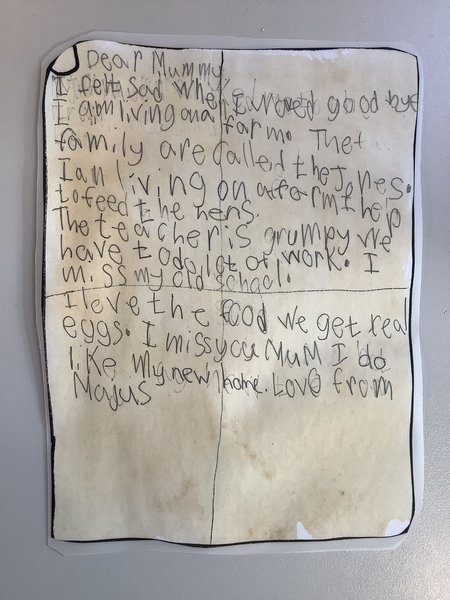 Dear Mummy
I felt sad when I waved good bye
I am living on a farm. The
family are called the Jones.
I am living on a farm I help
to feed the hens.
The teacher is grumpy we
have to do a lot of work. I
miss my old school.
I love the food we get real
eggs. I miss you Mum I do
like my new home. Love from
Majus